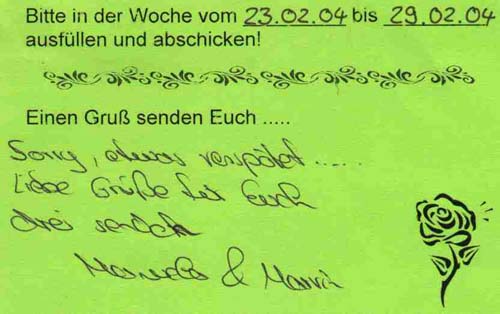 Bitte in der Woche vom 23.02.04 bis 29.02.04
ausfüllen und abschicken!
Einen Gruß senden Euch .....
Sorry, etwas verspätet .....
Liebe Grüße Euch
drei
Manuela &